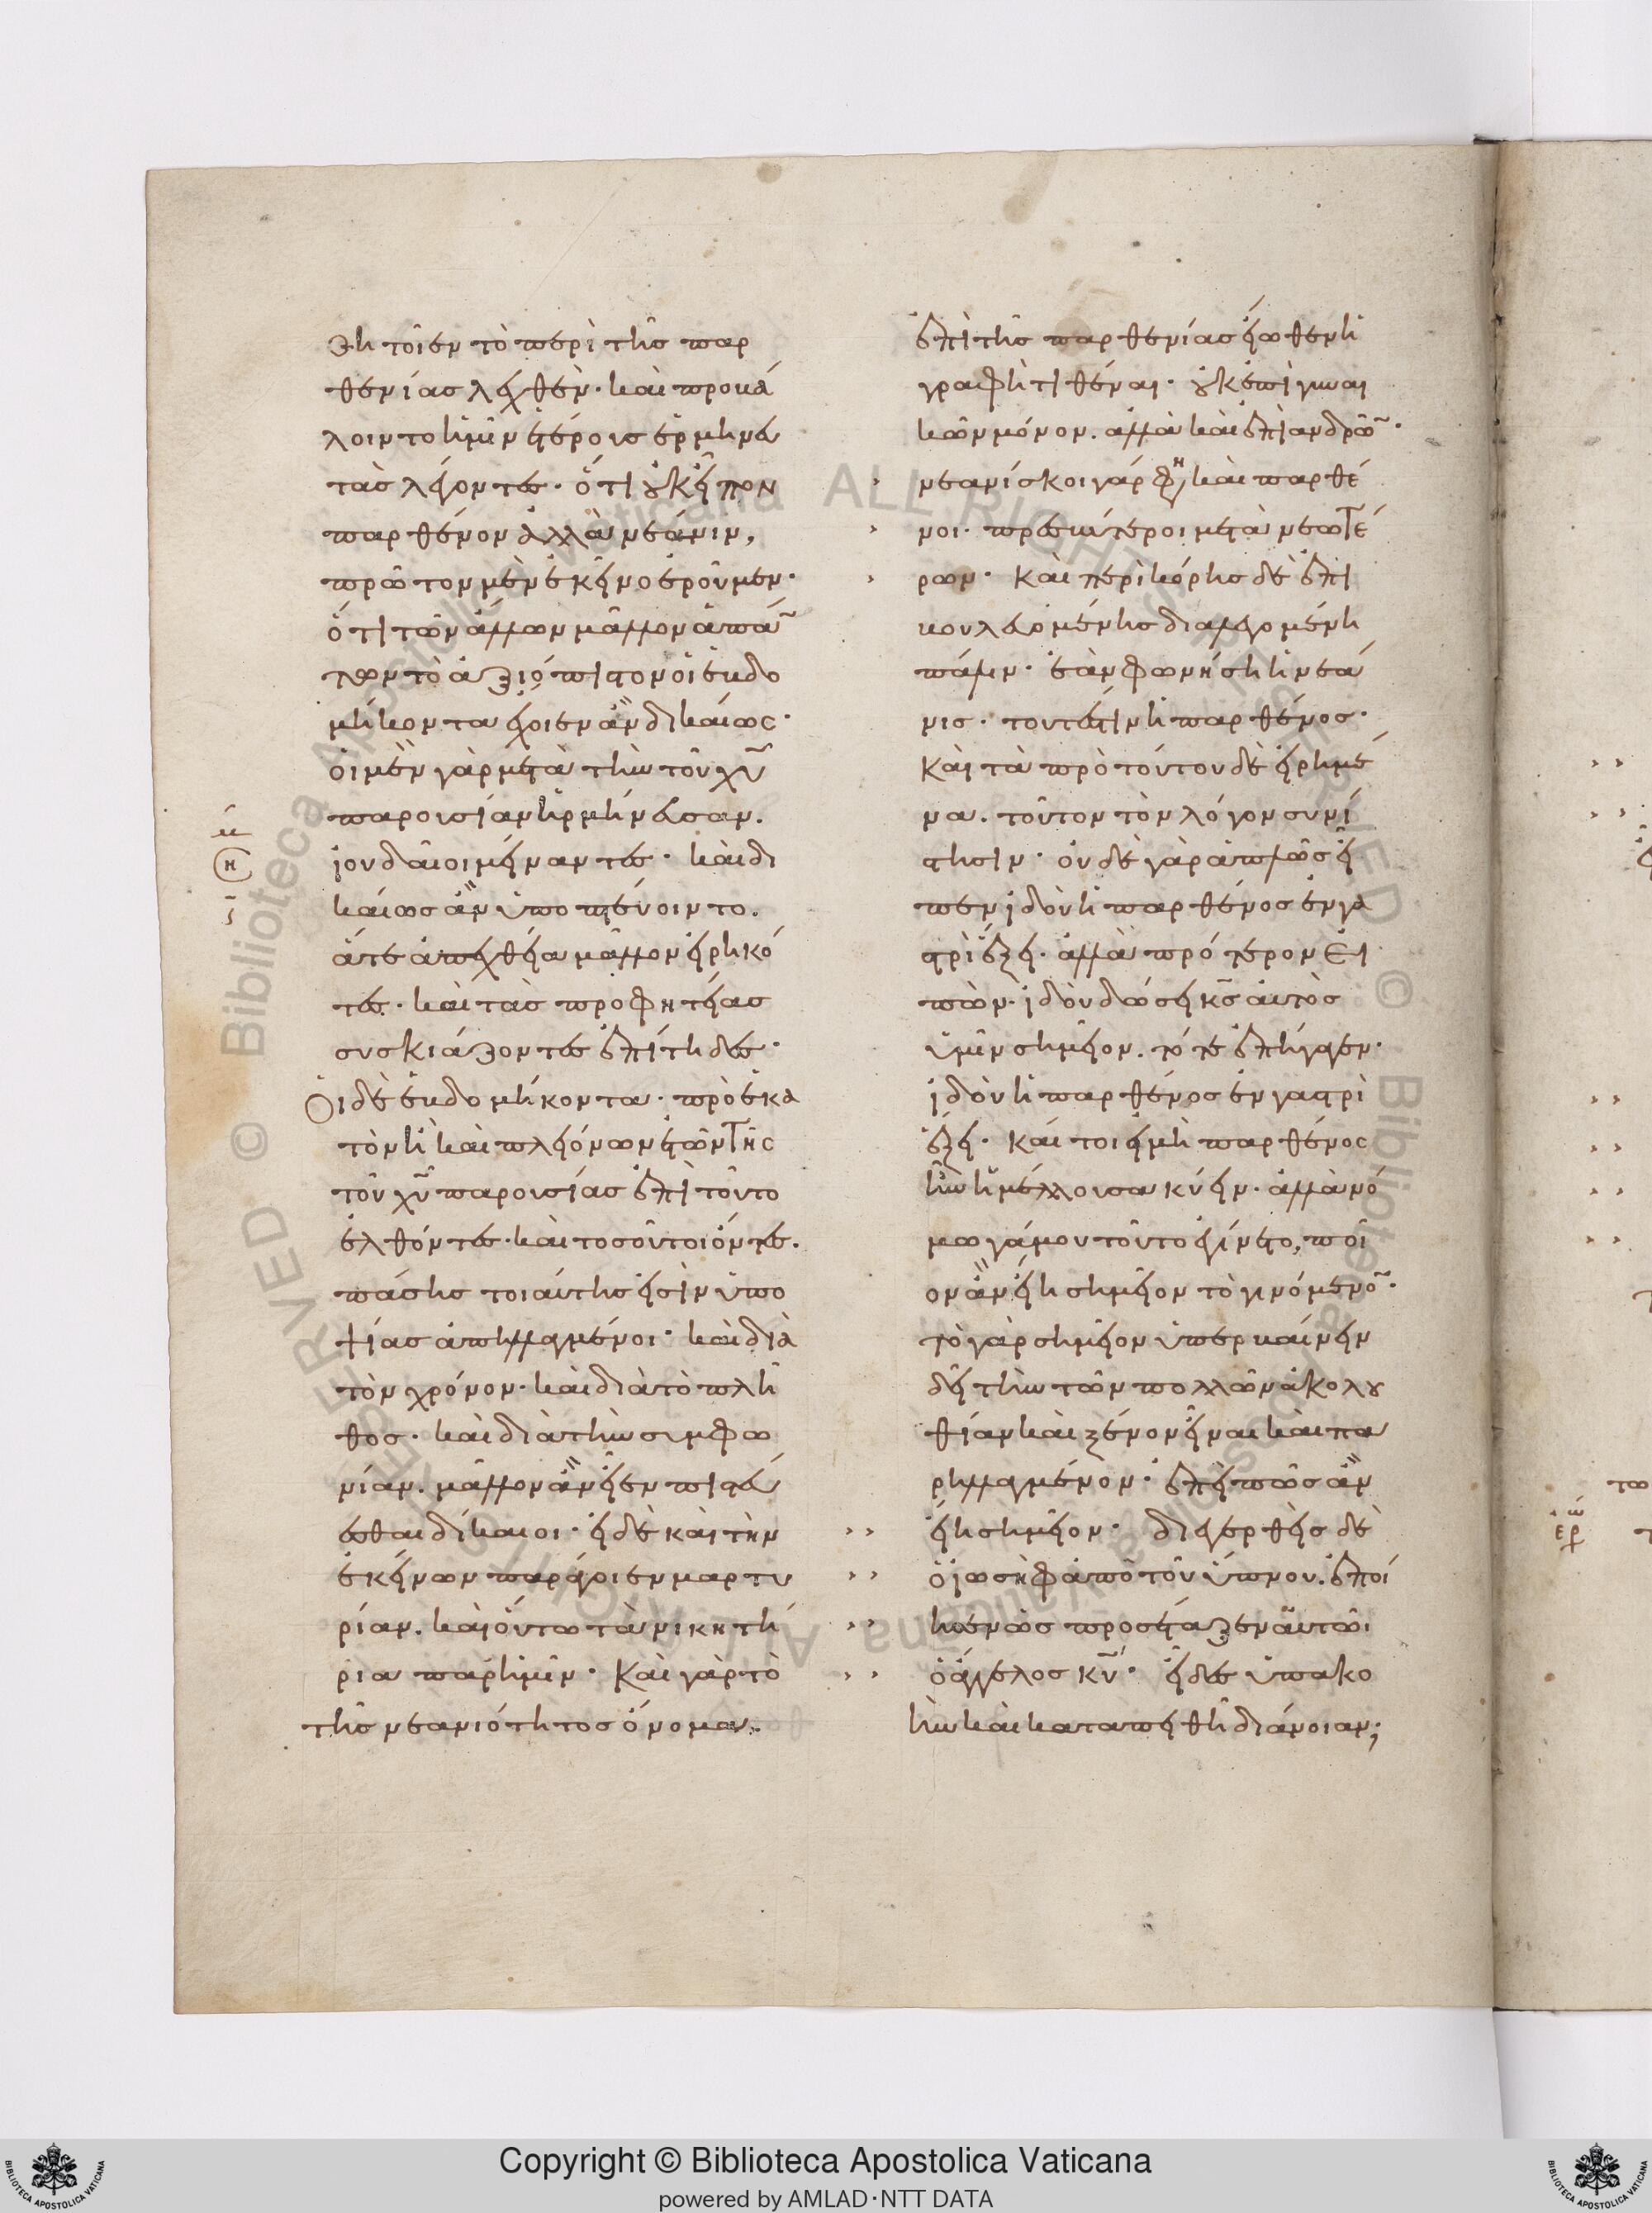 ζητοῖεν τὸ περὶ τῆς παρ
θενίας λεχθέν· καὶ προβάλ
λοιντο ἡμῖν ἑτέρους ἑρμηνευ
τὰς λέγοντες· ὅτι οὐκ εἶπον
παρθένον ἀλλὰ νεάνιν,
πρῶτον μὲν ἐκεῖνο ἐροῦμεν·
ὅτι τῶν ἄλλων μᾶλλον ἁπάν
των τὸ ἀξιόπιστον οἱ ἑβδο
μήκοντα ἔχοιεν ἂν δικαίως·
οἱ μὲν γὰρ μετὰ τὴν τοῦ χυ
παρουσίαν ἡρμήνευσαν.
ἰουδαῖοι μείναντες· καὶ δι
καίως ἂν ὑποπτεύοιντο.
ἅτε ἀπεχθείᾳ μᾶλλον εἰρηκό
τες· καὶ τὰς προφητείας
συσκιάζοντες ἐπίτηδες·
Οἱ δὲ ἑβδομήκοντα· πρὸ ἑκα
τὸν ἢ καὶ πλειόνων ἐτῶν τῆς
τοῦ χυ παρουσίας ἐπὶ τοῦτο
ἐλθόντες· καὶ τοσοῦτοι ὄντες.
πάσης τοιαύτης εἰσὶν ὑπο
ψίας ἀπηλλαγμένοι· καὶ διὰ
τὸν χρόνον· καὶ διὰ τὸ πλῆ
θος· καὶ διὰ τὴν συμφω
νίαν. μᾶλλον ἂν εἶεν πιστεύ
εσθαι δίκαιοι· εἰ δὲ καὶ τὴν
ἐκείνων παράγοιεν μαρτυ
ρίαν. καὶ οὕτω τὰ νικητή
ρια παρ ἡμῖν· Καὶ γὰρ τὸ
τῆς νεανιότητος ὄνομα.
μ
η
ἐπὶ τῆς παρθενίας εἴωθεν ἡ
γραφὴ τιθέναι· οὐκ ἐπὶ γυναι
κῶν μόνον. ἀλλὰ καὶ ἐπὶ ἀνδρῶν·
νεανίσκοι γάρ φη καὶ παρθέ
νοι· πρεσβύτεροι μετὰ νεωτέ
ρων· Καὶ περὶ κόρης δὲ ἐπι
βουλευομένης διαλεγομένη
πάλιν· ἐὰν φωνήσῃ ἡ νεᾶ
νις· τουτέστιν ἡ παρθένος·
Καὶ τὰ πρὸ τούτου δὲ εἰρημέ
να. τοῦτον τὸν λόγον συνί
στησιν· οὐδὲ γὰρ ἁπλῶς εἶ
πεν ἰδοὺ ἡ παρθένος ἐν γα
στρὶ ἕξει· ἀλλὰ πρότερον εἰ
πὼν· ἰδοὺ δώσει κς αὐτὸς
ὑμῖν σημεῖον. τότε ἐπήγαγεν·
ἰδοὺ ἡ παρθένος ἐν γαστρὶ
ἕξει· Καίτοι εἰ μὴ παρθένος
ἦν ἡ μέλλουσα κύειν· ἀλλὰ νό
μω γάμου τοῦτο ἐγίνετο, ποῖ
ον ἂν εἴη σημεῖον τὸ γινόμενον·
τὸ γὰρ σημεῖον ὑπερβαίνειν
δεῖ τὴν τῶν πολλῶν ἀκολου
θίαν καὶ ξένον εἶναι καὶ πα
ρηλλαγμένον· ἐπεὶ πῶς ἂν
εἴη σημεῖον· διεγερθεὶς δὲ
ὁ ἰωσὴφ ἀπὸ τοῦ ὕπνου. ἐποί
ησεν ὡς προσέταξεν αὐτῶι
ὁ ἄγγελος κυ· εἶδες ὑπακο
ὴν καὶ καταπειθῆ διάνοιαν;
Copyright © Biblioteca Apostolica Vaticana
powered by AMLAD·NTT DATA